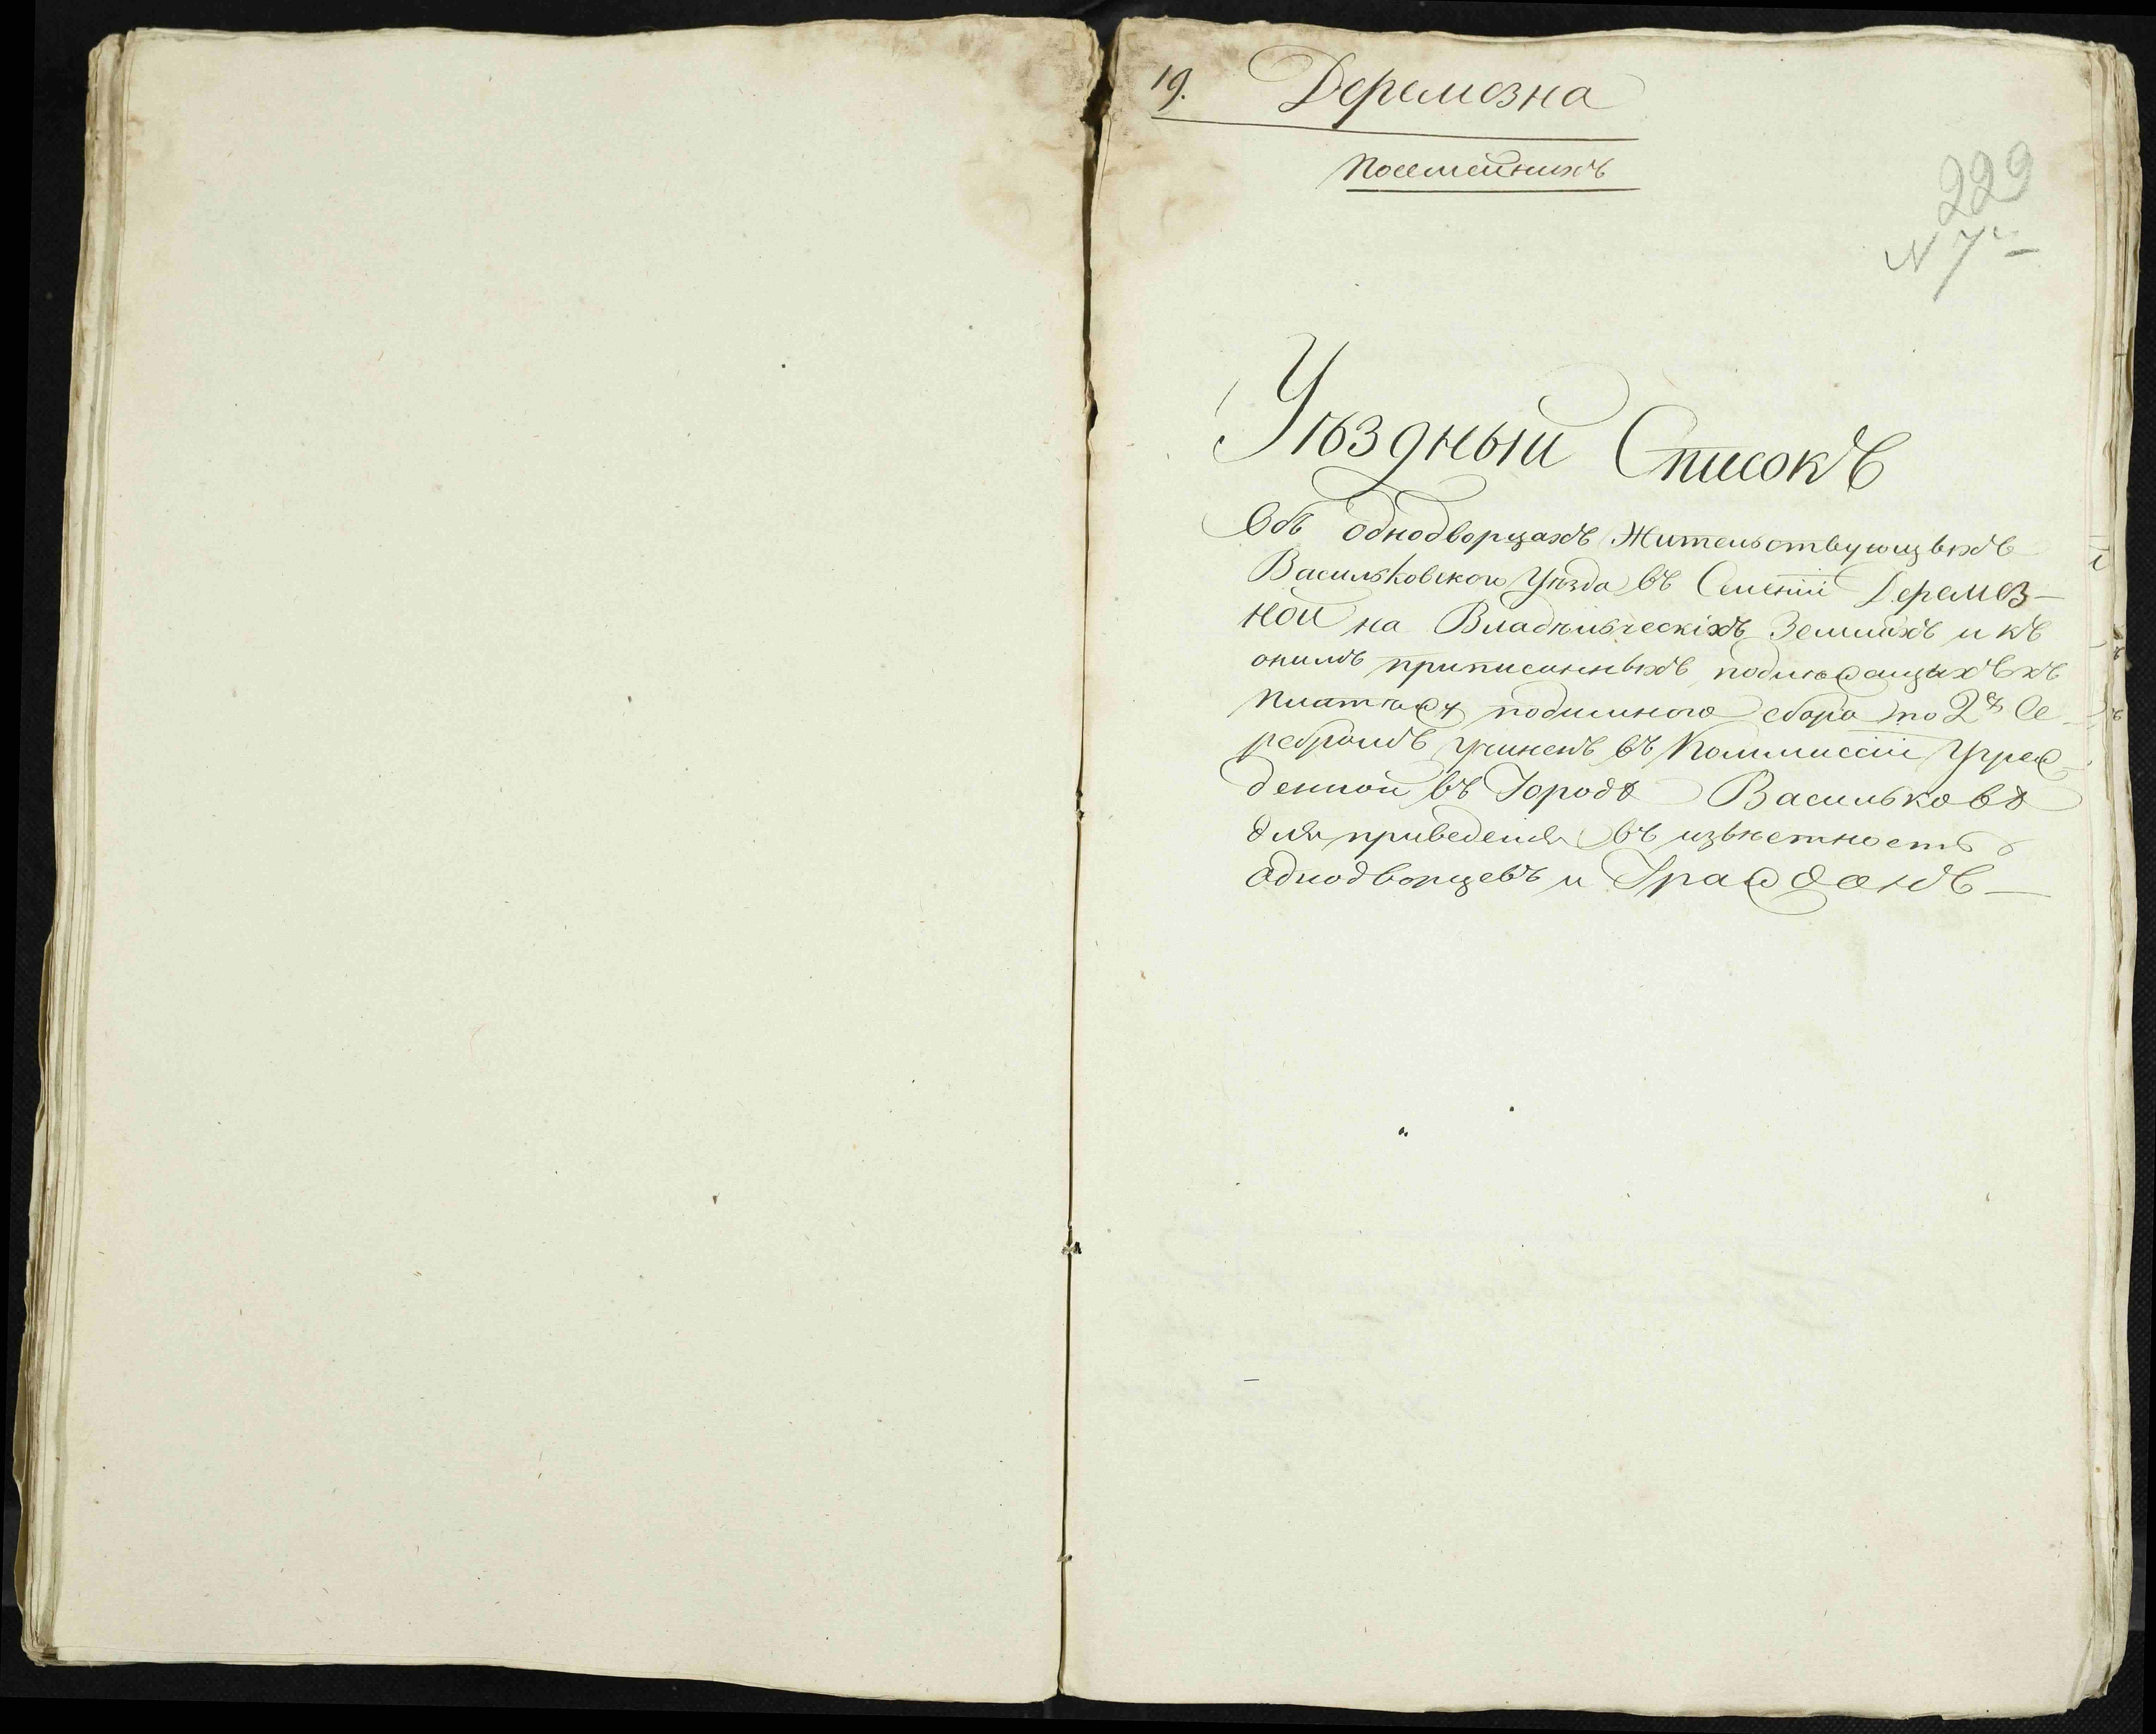 19. Деремезна
Посемейныхъ
229
N 7
Уѣздный Списокъ
Объ однодворцахъ жительствующыхъ
Васильковскаго Уѣзда въ Селеніи Деремез-
ной на Владѣльческіхъ Земляхъ и къ
онымъ приписанныхъ подлежащихъ къ
платежу подымнаго сбора по 2 Се-
ребромъ учиненъ въ Коммиссіи Учреж-
денной въ Городѣ Васильковѣ
для приведенія въ извѣстность
однодворцевъ и Гражданъ